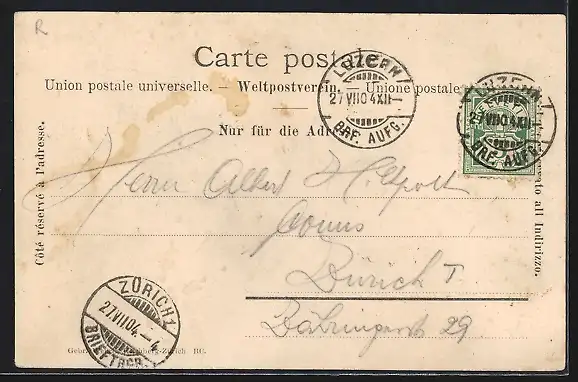 R
Carte postale
Union postale universelle. — Weltpostverein. — Unione postale
Nur für die Adr
Côté réservé à l'adresse.
ato all Indirizzo.
LUZERN
27 VII 04 XII —
BRF. AUFG.
LUZERN
27 VII 04 XII —
BRF. AUFG.
Herrn Albert Hiltpolt
Zürich I
Zähringerstr 29
ZÜRICH 1
27 VII 04 – 4
BRIEFTRÄG.
Gebr. Zürich RU.